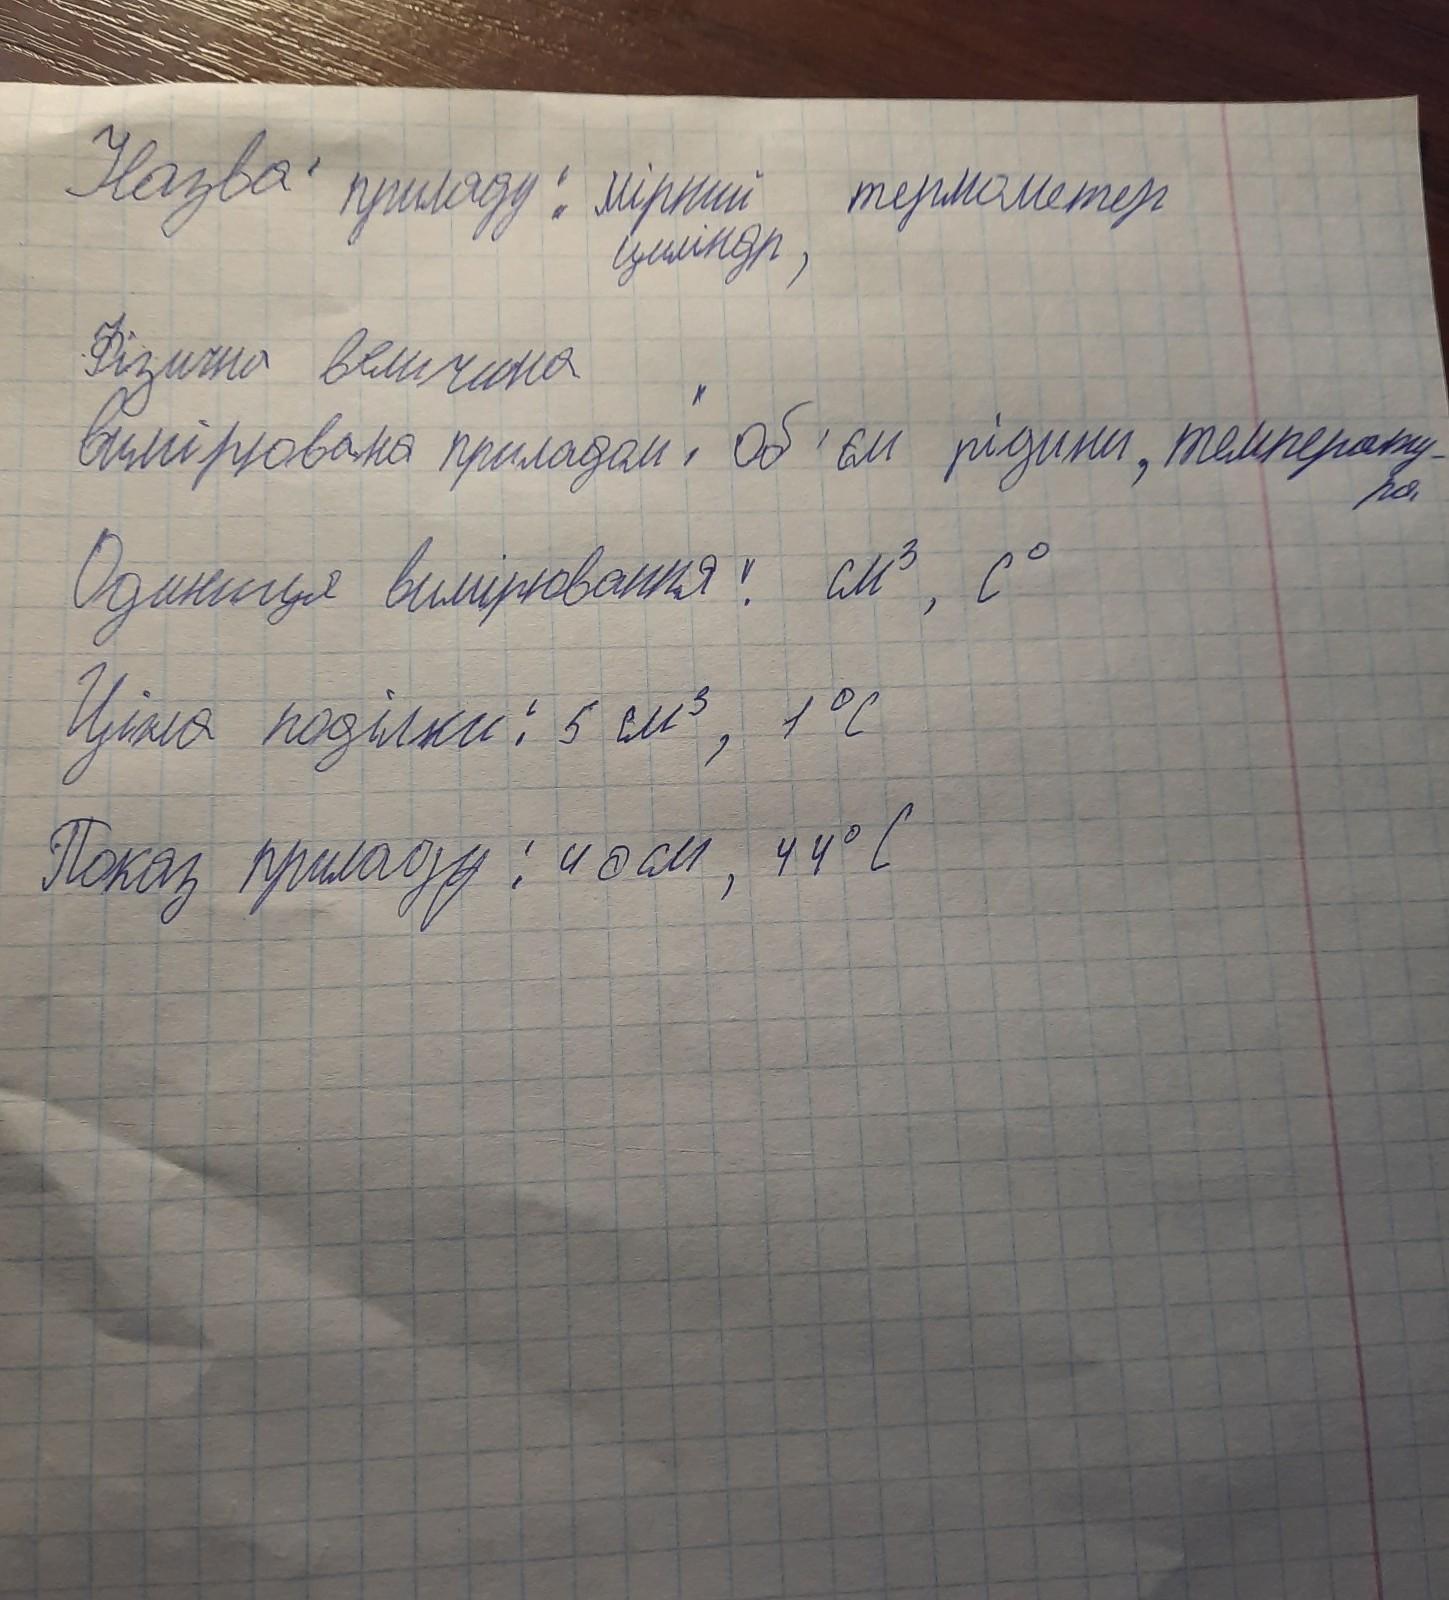 Назва приладу: мірний термометер
циліндр,
Фізична величина
вимірювана приладом: Об'єм рідини, температу-
ра
Одиниця вимірювання: см³, С°
Ціна поділки: 5 см³, 1°С
Показ приладу: 40см, 44°С